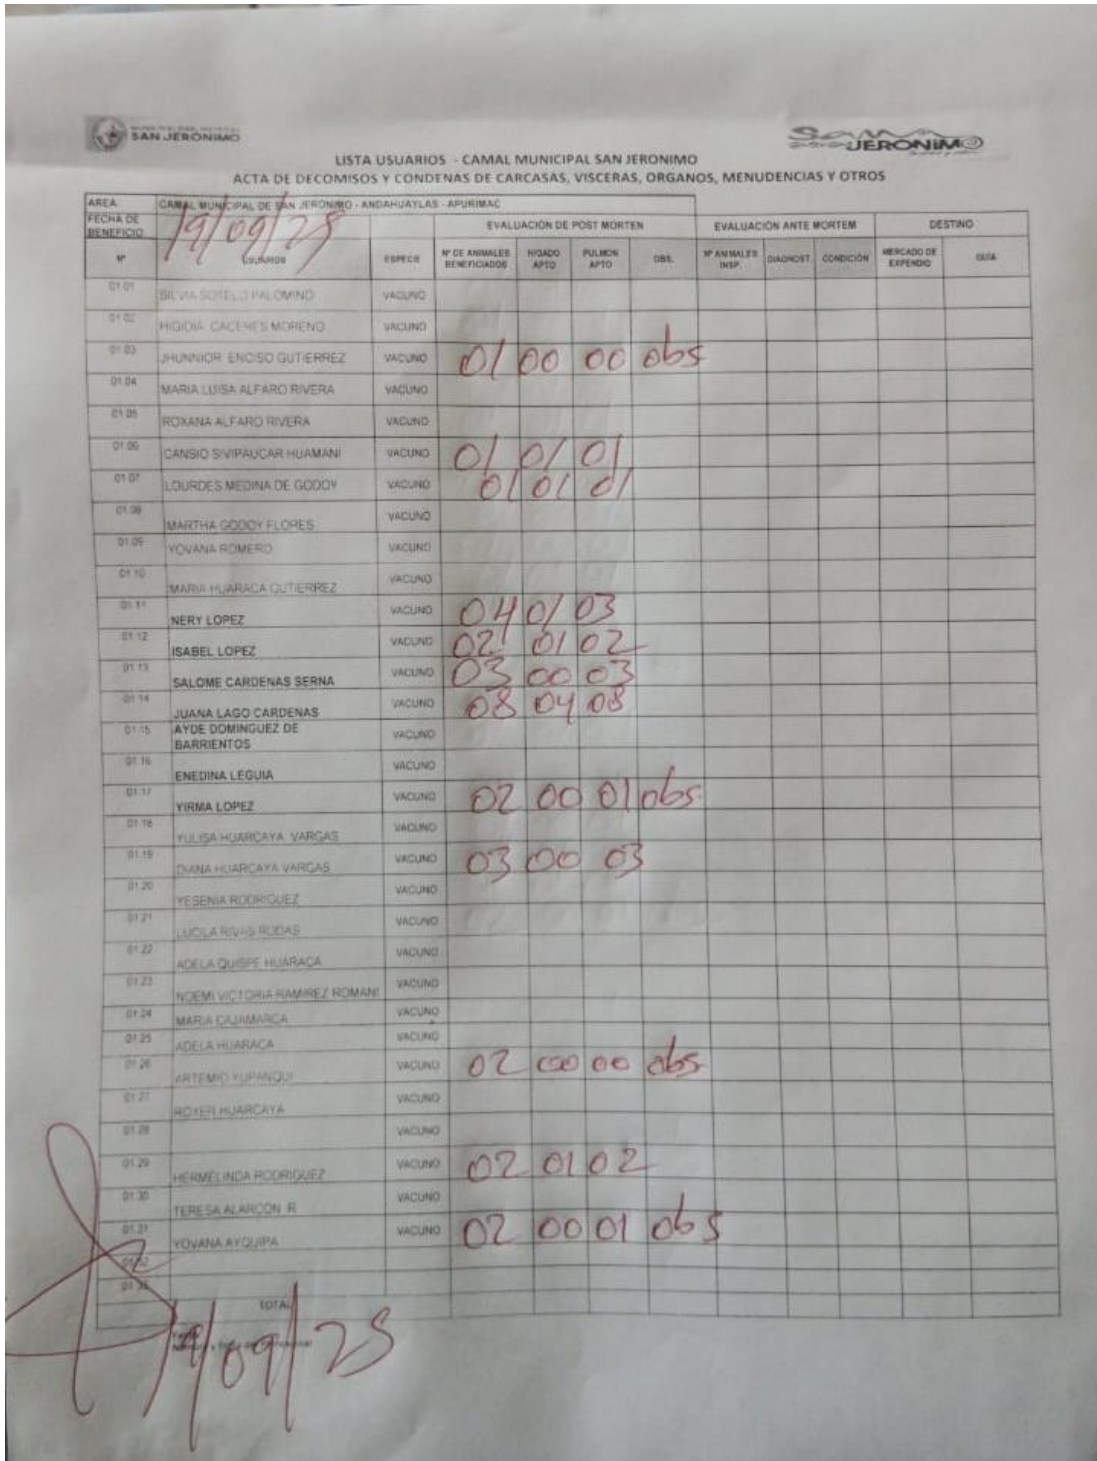 SAN JERONIMO
SAN JERONIMO
LISTA USUARIOS - CAMAL MUNICIPAL SAN JERONIMO
ACTA DE DECOMISOS Y CONDENAS DE CARCASAS, VISCERAS, ORGANOS, MENUDENCIAS Y OTROS
AREA CAMAL MUNICIPAL DE SAN JERONIMO - ANDAHUAYLAS - APURIMAC
FECHA DE BENEFICIO 19/09/25 EVALUACIÓN DE POST MORTEN EVALUACIÓN ANTE MORTEM DESTINO
Nº USUARIOS ESPECIE Nº DE ANIMALES BENEFICIADOS HIGADO APTO PULMON APTO OBS. Nº ANIMALES INSP. DIAGNOST. CONDICIÓN MERCADO DE EXPENDIO GUIA
01.01 SILVIA SOTELO PALOMINO VACUNO
01.02 HIGIDIA CACERES MORENO VACUNO
01.03 JHUNNIOR ENCISO GUTIERREZ VACUNO 01 00 00 obs
01.04 MARIA LUISA ALFARO RIVERA VACUNO
01.05 ROXANA ALFARO RIVERA VACUNO
01.06 CANSIO SIVIPAUCAR HUAMANI VACUNO 01 01 01
01.07 LOURDES MEDINA DE GODOY VACUNO 01 01 01
01.08 MARTHA GODOY FLORES VACUNO
01.09 YOVANA ROMERO VACUNO
01.10 MARIA HUARACA GUTIERREZ VACUNO
01.11 NERY LOPEZ VACUNO 04 01 03
01.12 ISABEL LOPEZ VACUNO 02 01 02
01.13 SALOME CARDENAS SERNA VACUNO 03 00 03
01.14 JUANA LAGO CARDENAS VACUNO 08 04 08
01.15 AYDE DOMINGUEZ DE BARRIENTOS VACUNO
01.16 ENEDINA LEGUIA VACUNO
01.17 YIRMA LOPEZ VACUNO 02 00 01 obs
01.18 YULISA HUARCAYA VARGAS VACUNO
01.19 DIANA HUARCAYA VARGAS VACUNO 03 00 03
01.20 YESENIA RODRIGUEZ VACUNO
01.21 LUCILA RIVAS RODAS VACUNO
01.22 ADELA QUISPE HUARACA VACUNO
01.23 NOEMI VICTORIA RAMIREZ ROMANI VACUNO
01.24 MARIA CAJAMARCA VACUNO
01.25 ADELA HUARACA VACUNO
01.26 ARTEMIO YUPANQUI VACUNO 02 00 00 obs
01.27 ROYER HUARCAYA VACUNO
01.28 VACUNO
01.29 HERMELINDA RODRIGUEZ VACUNO 02 01 02
01.30 TERESA ALARCON R VACUNO
01.31 YOVANA AYQUIPA VACUNO 02 00 01 obs
01.32
01.33
TOTAL
19/09/25